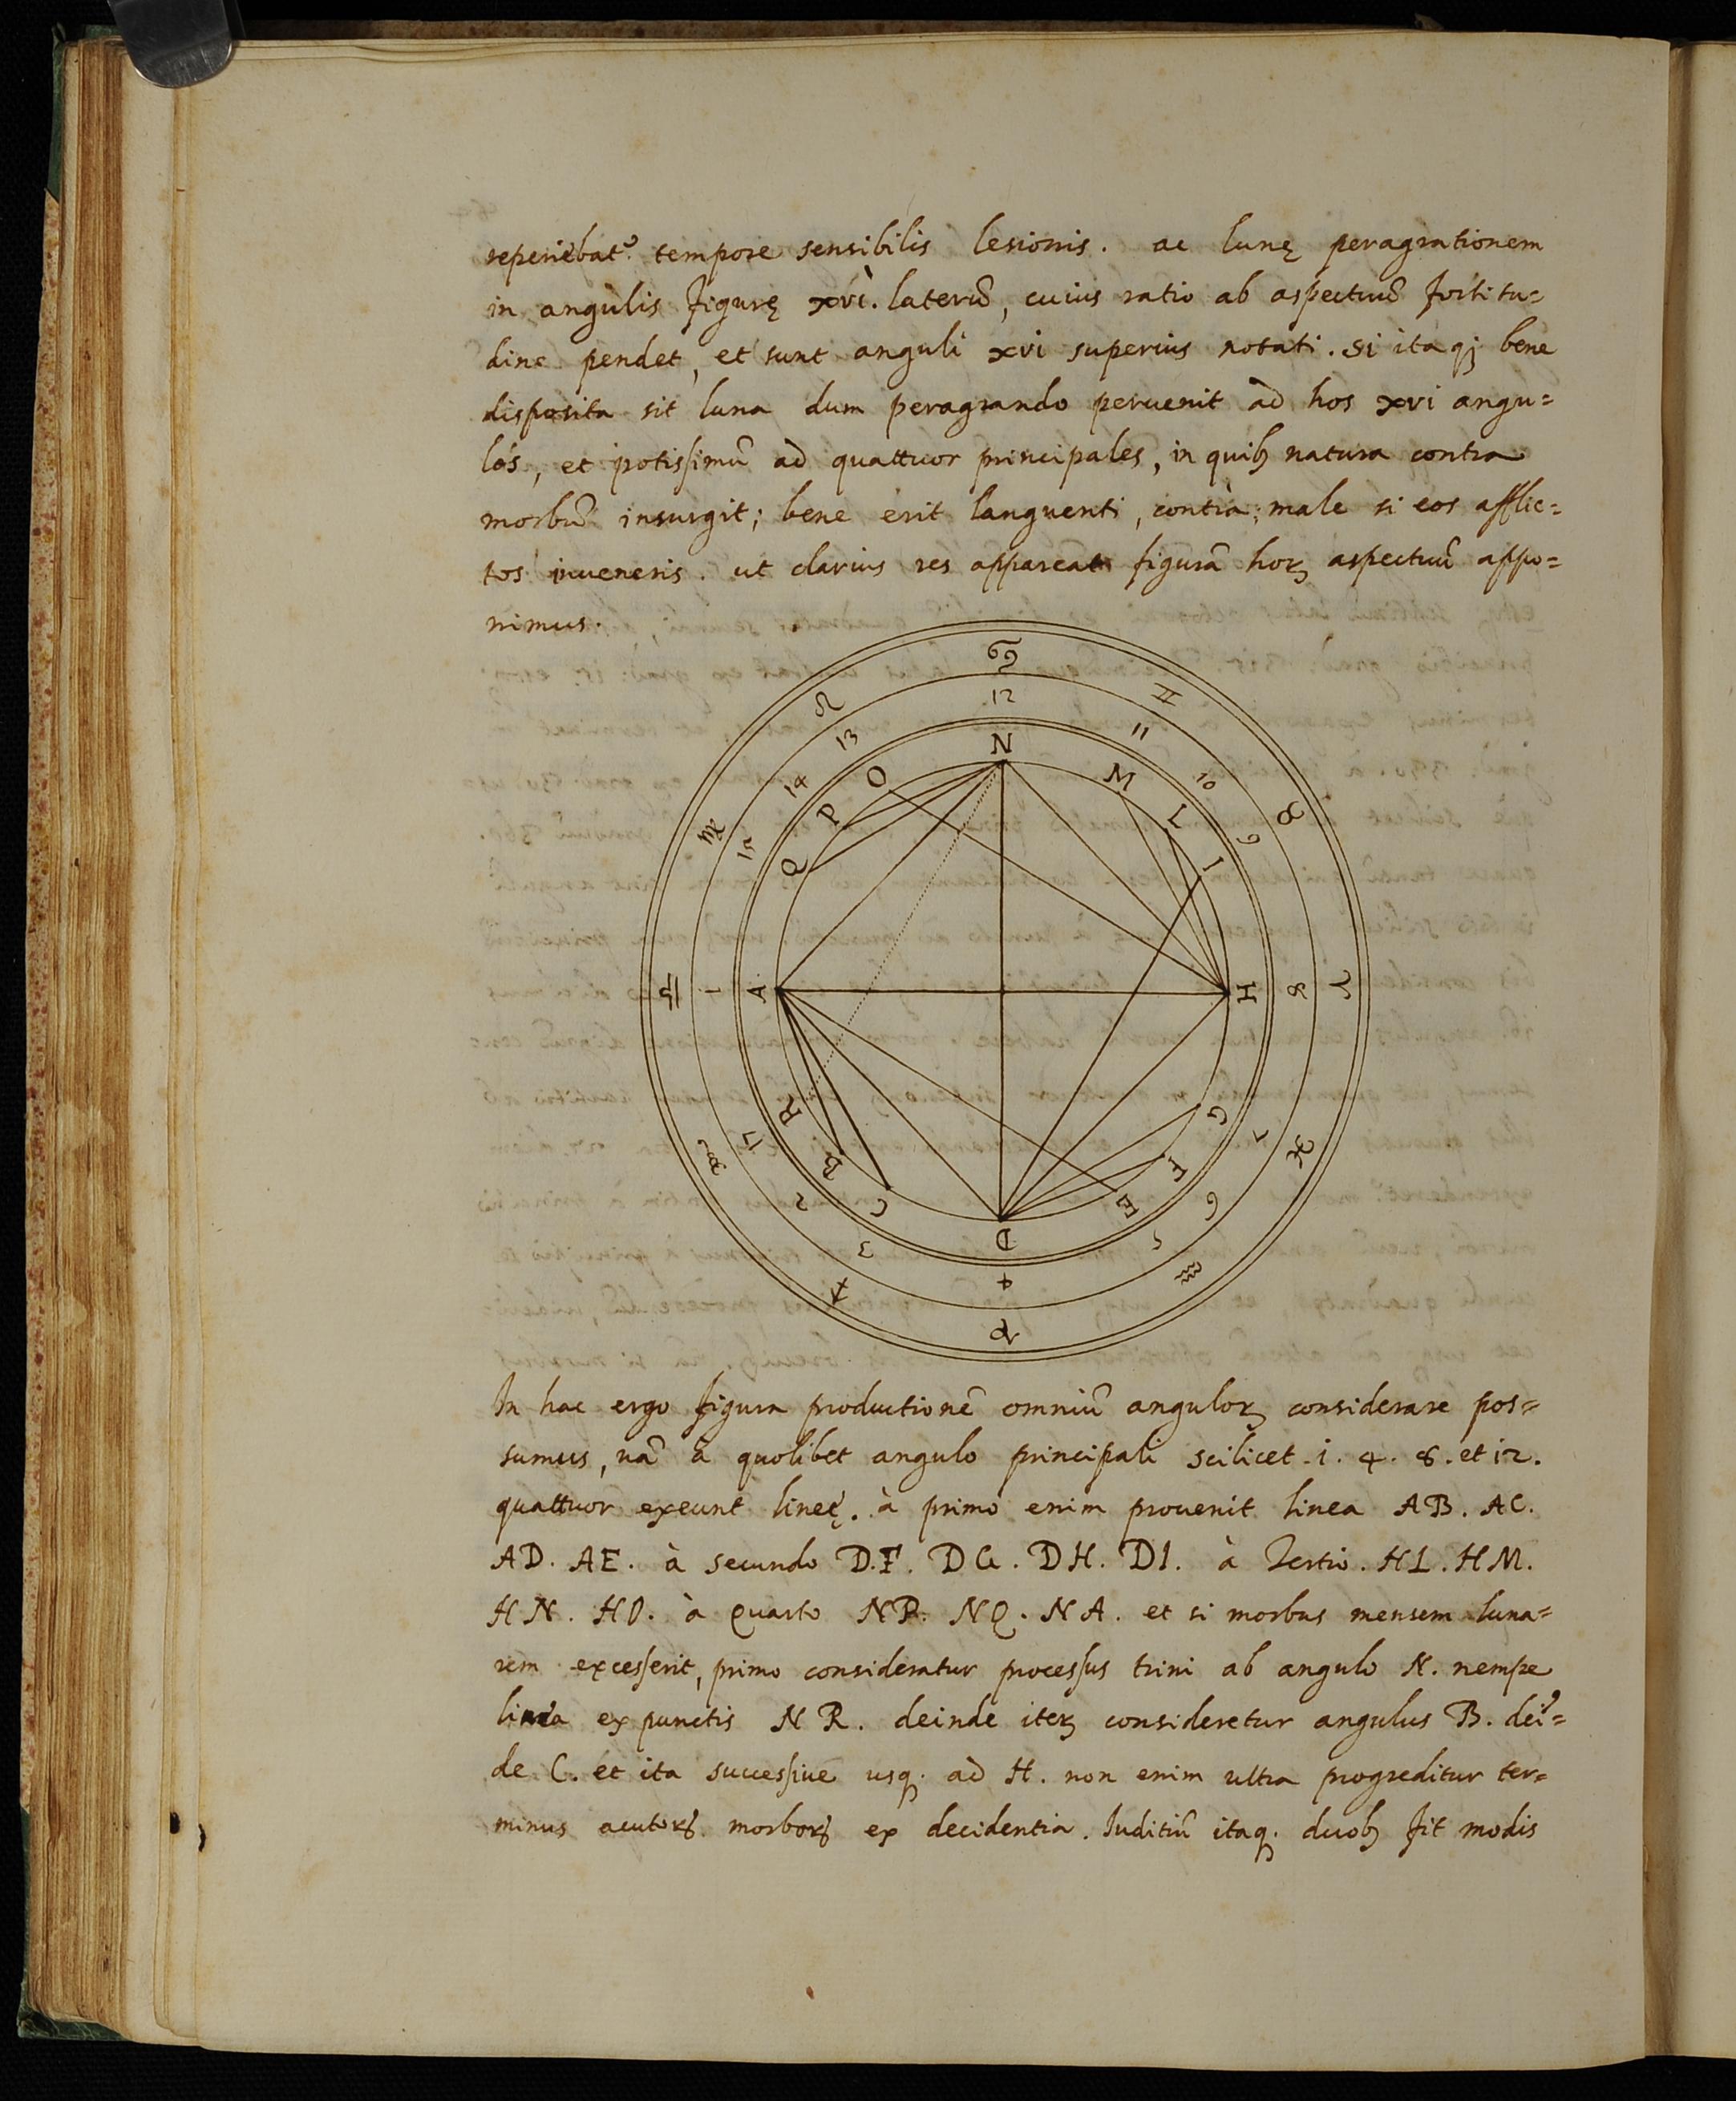 reperiebat᾽ tempore sensibilis lesionis. ac lunę peragrationem
in angulis figurę xvi. laterũ, cuius ratio ab aspectuũ fortitu=
dine pendet, et sunt anguli xvi superius notati. Si itaqȝ bene
disposita sit luna dum peragrando peruenit ad hos xvi angu=
los, et potissimũ ad quattuor principales, in quibȝ natura contra
morbũ insurgit; bene erit languenti, contrà; male si eos afflic=
tos inueneris. ut clarius res appareat figurã horȝ aspectuũ appo=
nimus.
♋
♌ ♊
12
13 11
N
O M
14 10
P L
♍ ♉
15 9
Q I
♎ 1 A H 8 ♈
R G
♏ 17 7 ♓
B F
2 6
C E
3 5
D
♐ 4 ♒
♑
In hac ergo figura productionẽ omniũ angulorȝ considerare pos=
sumus, nã à quolibet angulo principali scilicet. 1. 4. 8. et 12.
quattuor exeunt lineę. à primo enim prouenit linea AB. AC.
AD. AE. à secundo D.F. DG. DH. DI. à Tertio. HL. HM.
HN. HO. à Quarto NP. NQ. NA. et si morbus mensem luna=
rem excesserit, primo consideratur processus trini ab angulo N. nempe
linea ex punctis NR. deinde iterȝ consideretur angulus B. dei᾽=
de C. et ita successiue usqȝ. ad H. non enim ultra progreditur ter=
minus acutorȝ morborȝ ex decidentia. Iuditiũ itaqȝ. duobȝ fit modis